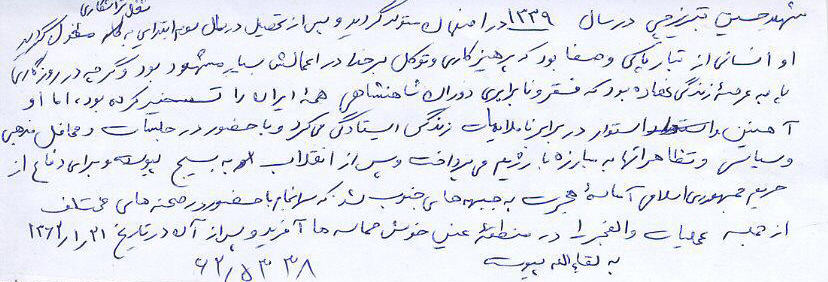 شغل تراشکاری
شهید حسین تبریزچی در سال ۱۳۳۹ در اصفهان متولد گردید و پس از تحصیل در سال سوم ابتدایی به کار مشغول گردید
او انسانی از تبار پاکی و صفا بود که پرهیزکاری و توکل بر خدا در اعمالش بسیار مشهود بود و گرچه در روزگاری
پا به عرصهٔ زندگی نهاده بود که فقر و نابرابری دوران شاهنشاهی همهٔ ایران را تسخیر کرده بود، اما او
آهنین و استوار در برابر ناملایمات زندگی ایستادگی می‌کرد و با حضور در جلسات و محافل مذهبی
و سیاسی و تظاهراتها به مبارزه با رژیم می‌پرداخت و پس از انقلاب به بسیج پیوست و برای دفاع از
حریم جمهوری اسلامی آمادهٔ هجرت به جبهه‌های جنوب شد که سرانجام با حضور در صحنه‌های مختلف
از جمله عملیات والفجر ۱ در منطقهٔ عین خوش حماسه‌ها آفرید و پس از آن در تاریخ ۱۳۶۲/۱/۲۱
به لقاءالله پیوست
۶۲۱۵۳۳۸